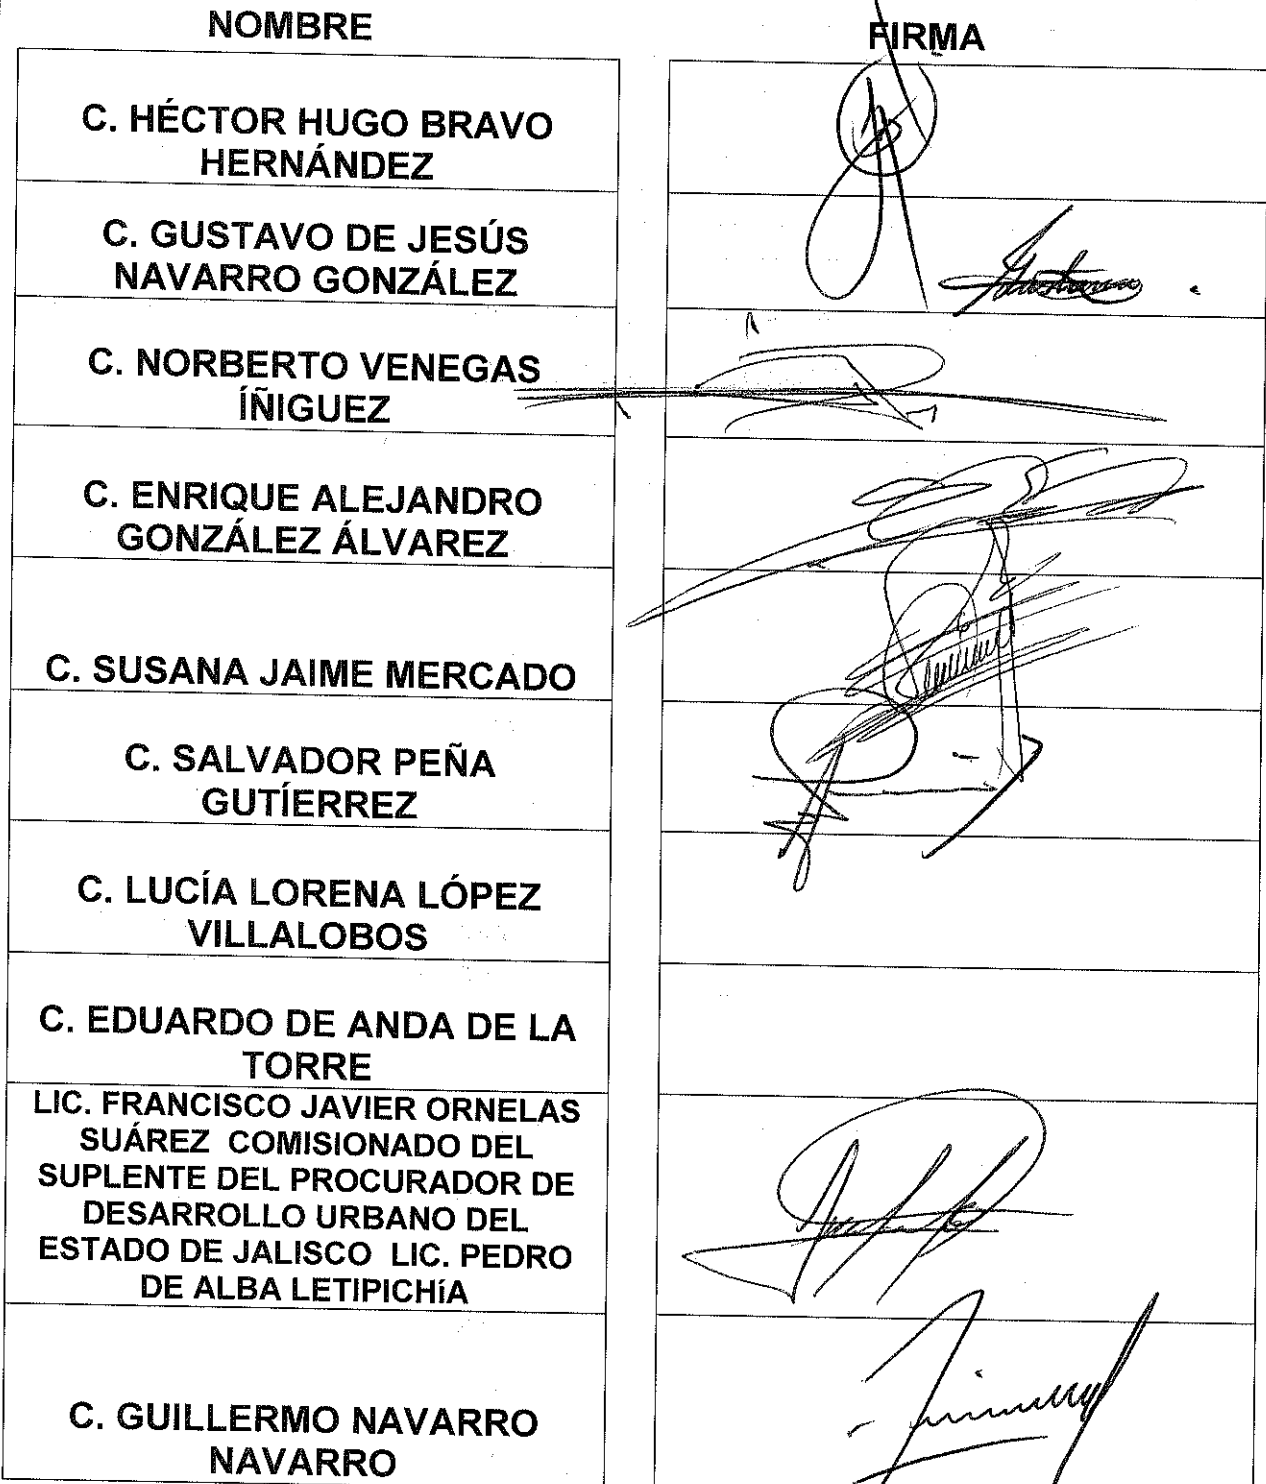 NOMBRE
FIRMA
C. HÉCTOR HUGO BRAVO
HERNÁNDEZ
C. GUSTAVO DE JESÚS
NAVARRO GONZÁLEZ
C. NORBERTO VENEGAS
ÍÑIGUEZ
C. ENRIQUE ALEJANDRO
GONZÁLEZ ÁLVAREZ
C. SUSANA JAIME MERCADO
C. SALVADOR PEÑA
GUTÍERREZ
C. LUCÍA LORENA LÓPEZ
VILLALOBOS
C. EDUARDO DE ANDA DE LA
TORRE
LIC. FRANCISCO JAVIER ORNELAS
SUÁREZ COMISIONADO DEL
SUPLENTE DEL PROCURADOR DE
DESARROLLO URBANO DEL
ESTADO DE JALISCO LIC. PEDRO
DE ALBA LETIPICHíA
C. GUILLERMO NAVARRO
NAVARRO